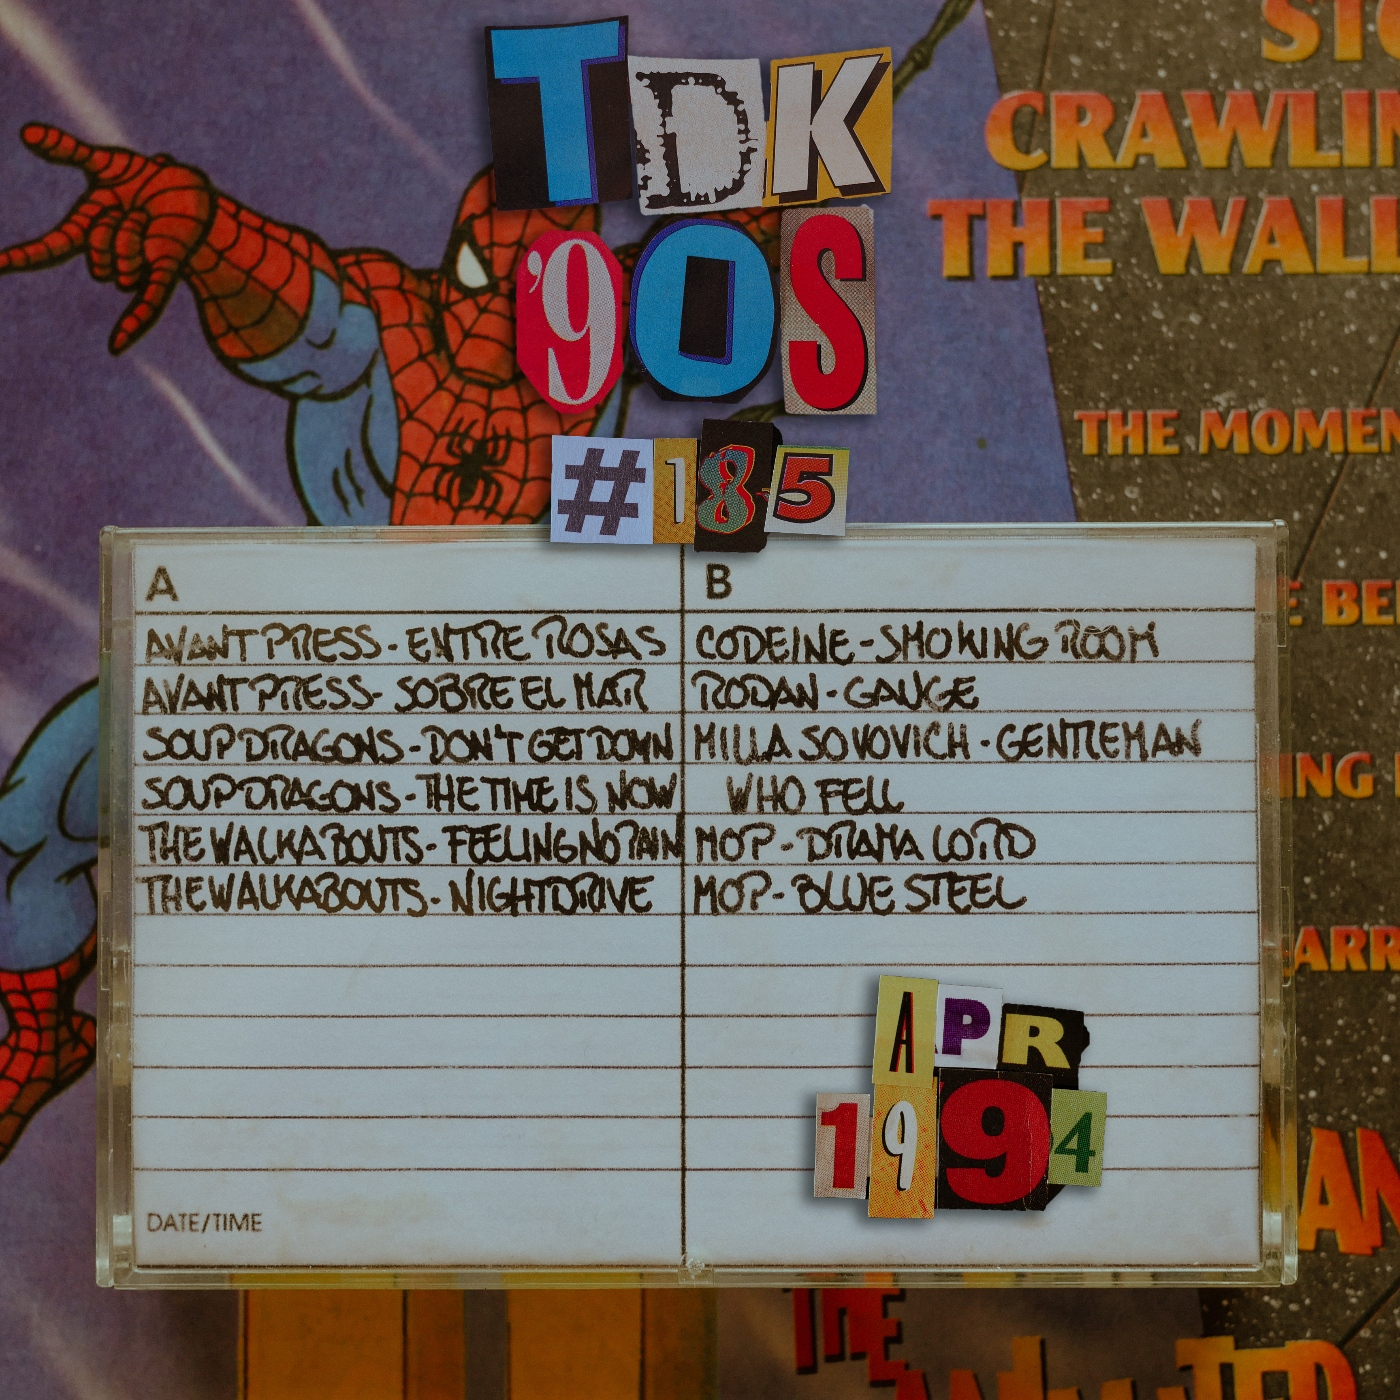 TDK
'90S
#185
STO
CRAWLIN
THE WALL
THE MOMEN
E BE
ING
ARR
AN
THE
ANIMATED
A
AVANT PRESS - ENTRE ROSAS
AVANT PRESS - SOBRE EL MAR
SOUP DRAGONS - DON'T GET DOWN
SOUP DRAGONS - THE TIME IS NOW
THE WALKABOUTS - FEELING NO PAIN
THE WALKABOUTS - NIGHTDRIVE
DATE/TIME
B
CODEINE - SMOKING ROOM
RODAN - GAUGE
MILLA SOVOVICH - GENTLEMAN
WHO FELL
MOP - DRAMA LORD
MOP - BLUE STEEL
APR
1994